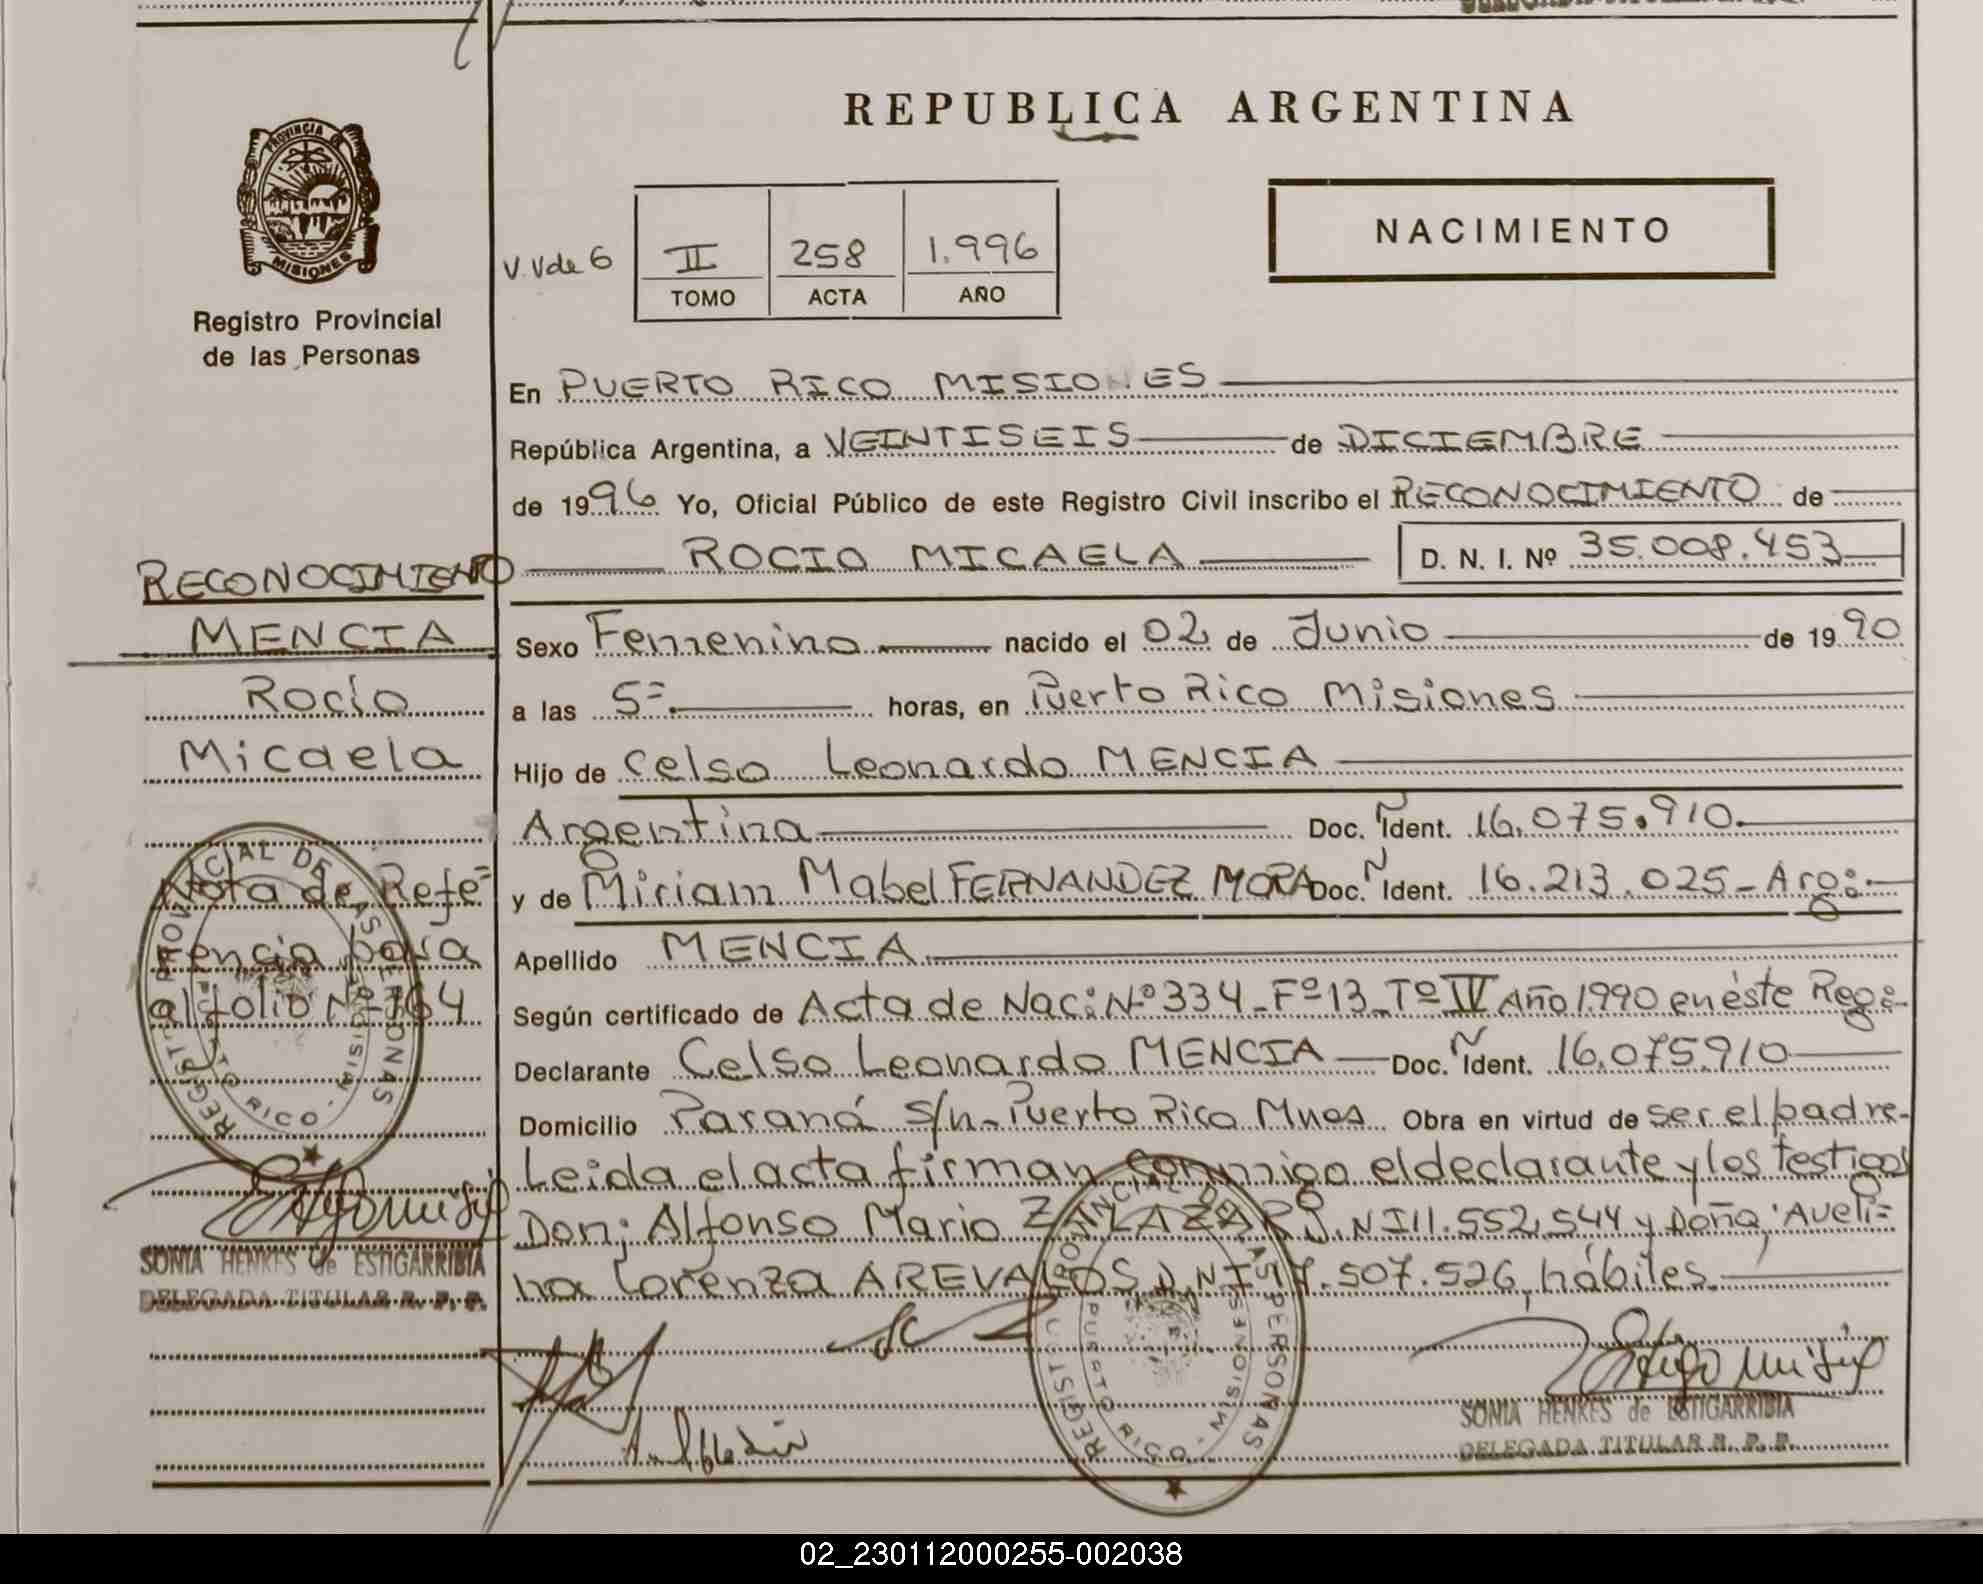 REPUBLICA ARGENTINA
PROVINCIA DE MISIONES
Registro Provincial
de las Personas
V. Vde 6
II 258 1.996
TOMO ACTA AÑO
NACIMIENTO
En PUERTO RICO MISIONES
República Argentina, a VEINTISEIS de DICIEMBRE
de 1996 Yo, Oficial Público de este Registro Civil inscribo el RECONOCIMIENTO de
ROCIO MICAELA D. N. I. Nº 35.008.453
Sexo Femenino nacido el 02 de Junio de 1990
a las 5=. horas, en Puerto Rico Misiones
Hijo de Celso Leonardo MENCIA
Argentina Doc. Ñ Ident. 16.075.910.
y de Miriam Mabel FERNANDEZ MORA Doc. Ñ Ident. 16.213.025_Arg:
Apellido MENCIA
Según certificado de Acta de Nac: Nº 334_Fº13_Tº IV Año 1990 en éste Reg:
Declarante Celso Leonardo MENCIA Doc. Ñ Ident. 16.075.910
Domicilio Paraná S/n-Puerto Rico Mnes Obra en virtud de ser el padre-
Leida el acta firman conmigo el declarante y los testigos
Don; Alfonso Mario D.N.I 11.552.544 y Doña, Aveli=
na Lorenza AREVALOS D.N.I 507.526, hábiles.
SONIA HENKES de ESTIGARRIBIA
DELEGADA TITULAR R. P. P.
RECONOCIMIENTO
MENCIA
Rocío
Micaela
Nota de Refe=
rencia para
al folio Nº 164
SONIA HENKES de ESTIGARRIBIA
DELEGADA TITULAR R. P. P.
REGIST. PROVINCIAL DE LAS PERSONAS
PUERTO RICO - MISIONES
REGIST. PROVINCIAL DE LAS PERSONAS
PUERTO RICO - MISIONES
02_230112000255-002038